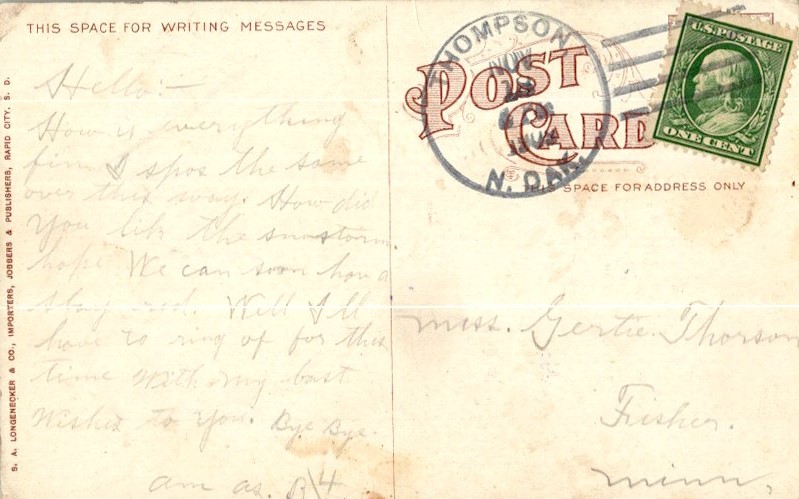 THIS SPACE FOR WRITING MESSAGES
Hello:-
How is everything
fine I spos the same
over this way. How did
you lik the snostorm.
hope We can soon hav a
slay rid. Well I ll
have to ring of for this
time With my best
Wishes to you. Bye Bye.
am as.
S. A. LONGENECKER & CO., IMPORTERS, JOBBERS & PUBLISHERS, RAPID CITY, S. D.
THOMPSON
NOV
N. DAK.
POST
CARD
U.S. POSTAGE
ONE CENT
THIS SPACE FOR ADDRESS ONLY
Miss. Gertie Thorson
Fisher.
Minn.